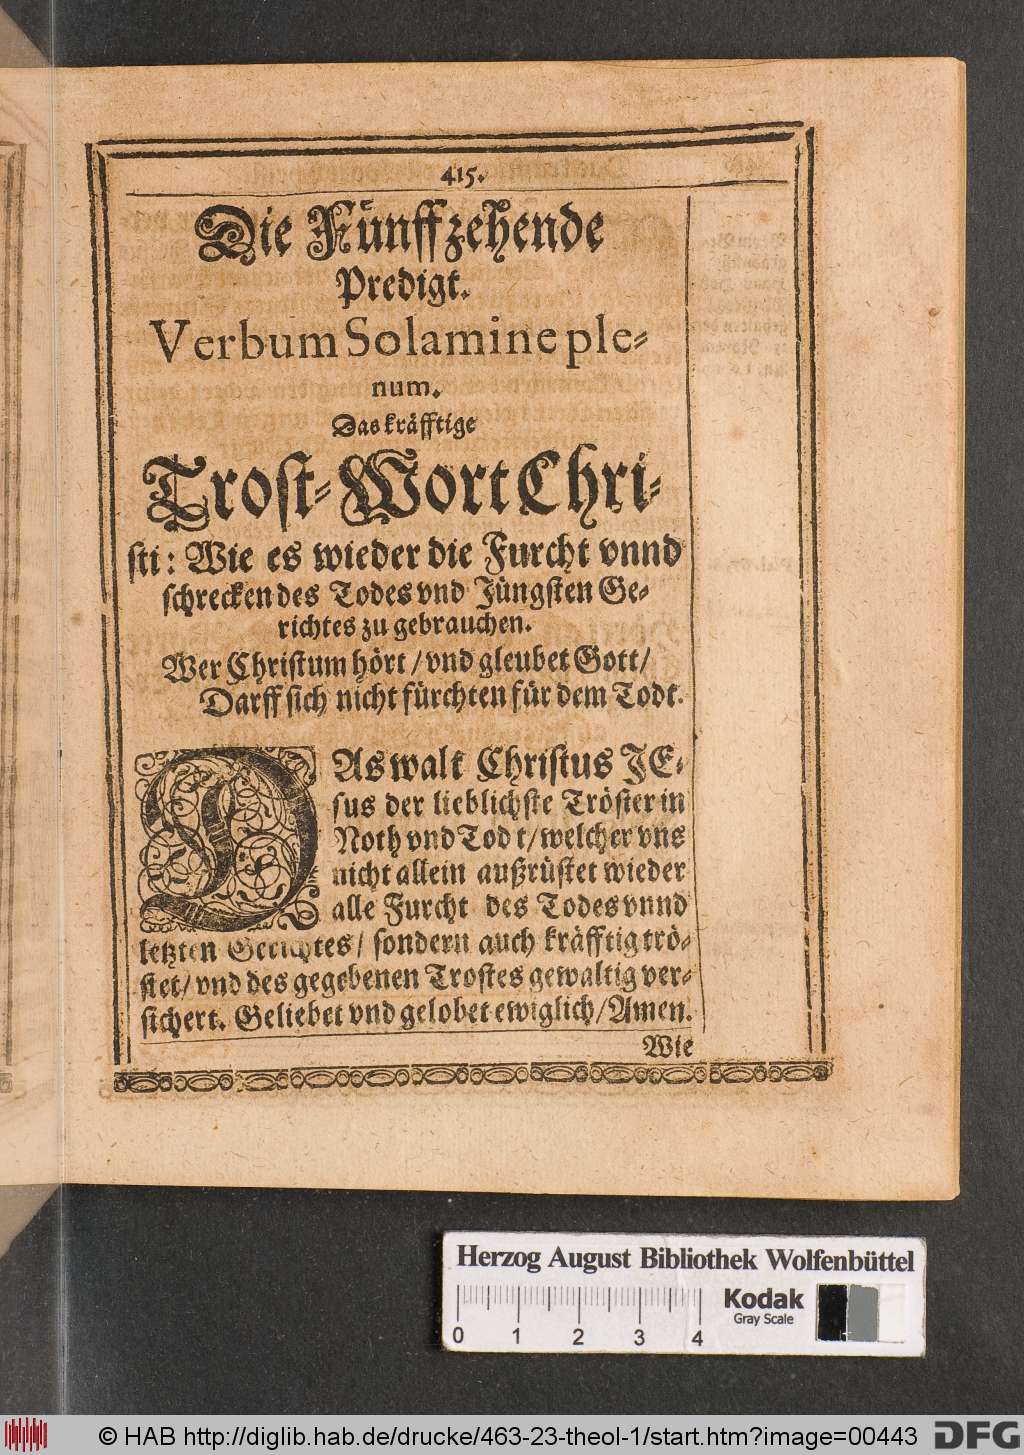 415.
Die Fünffzehende
Predigt.
Verbum Solamine ple-
num.
Das kräfftige
Trost-Wort Chri-
sti: Wie es wieder die Furcht vnnd
schrecken des Todes vnd Jüngsten Ge-
richtes zu gebrauchen.
Wer Christum hört / vnd gleubet Gott /
Darff sich nicht fürchten für dem Todt.
DAs walt Christus JE-
sus der lieblichste Tröster in
Noth vnd Todt / welcher vns
nicht allein außrüstet wieder
alle Furcht des Todes vnnd
letzten Gerichtes / sondern auch kräfftig trö-
stet / vnd des gegebenen Trostes gewaltig ver-
sichert. Geliebet vnd gelobet ewiglich / Amen.
Wie
Herzog August Bibliothek Wolfenbüttel
0 1 2 3 4
Kodak
Gray Scale
© HAB http://diglib.hab.de/drucke/463-23-theol-1/start.htm?image=00443
DFG